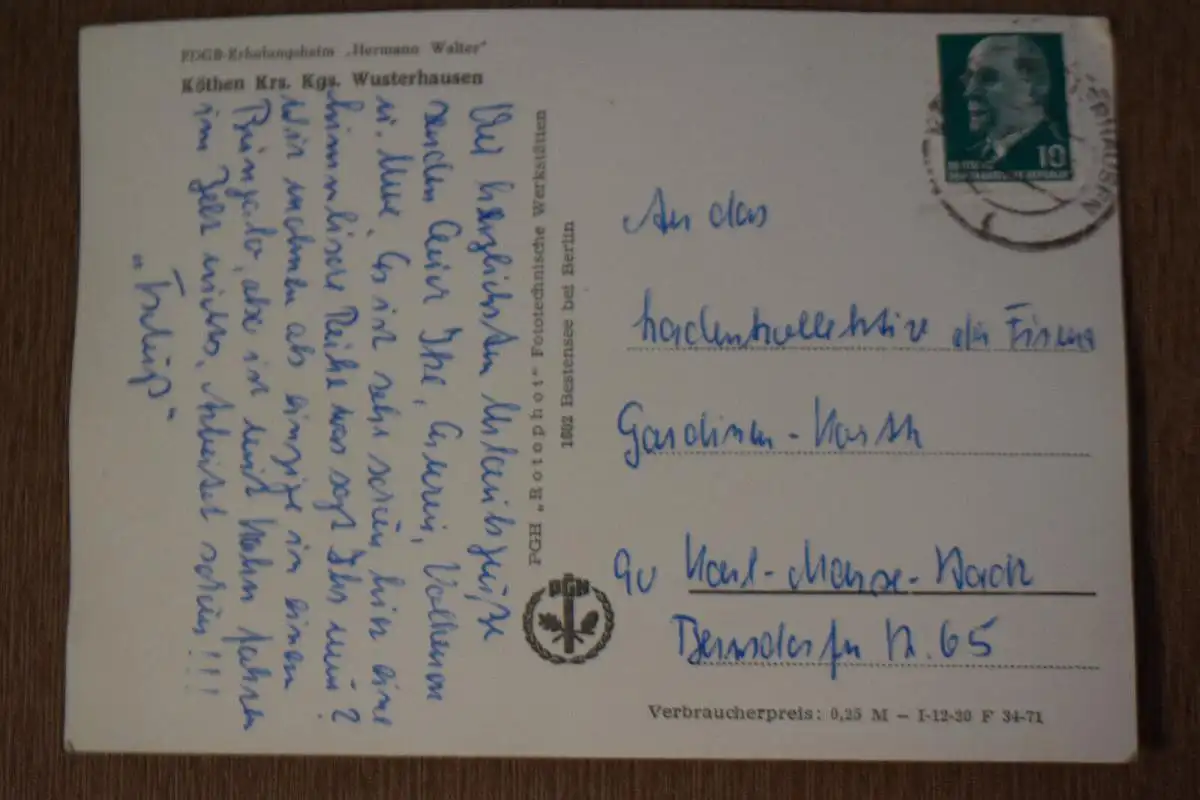 FDGB-Erholungsheim „Hermann Walter"
Köthen Krs. Kgs. Wusterhausen
Die herzlichsten Urlaubsgrüße
senden Euch Ihr,
u. Es ist sehr schön hier eine
himmlische Ruhe was sagt Ihr nun?
Wir wohnen als einzige in einen
Bungalo, aber ist mit Kahn fahren
im Zelt nichts, Arbeitet schön!!!
PGH „Rotophot" Fototechnische Werkstätten
1602 Bestensee bei Berlin
PGH
10
DEUTSCHE DEMOKRATISCHE REPUBLIK
An das
Ladenkollektive der Firma
Gardinen-Korth
90 Karl-Marx-Stadt
Bernsdorfer 65
Verbraucherpreis: 0,25 M – I-12-20 F 34-71